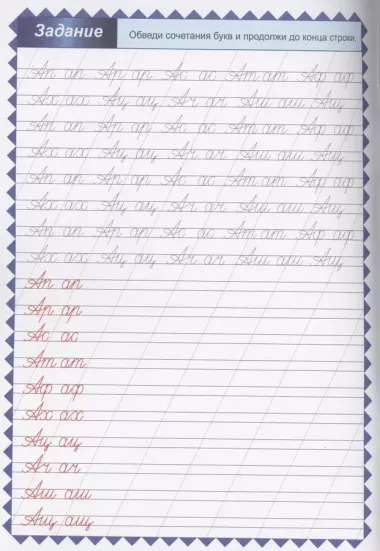 Задание
Обведи сочетания букв и продолжи до конца строки.
Ап ап Ар ар Ас ас Ат ат Аф аф
Ах ах Ац ац Ач ач Аш аш Ащ
Ап ап Ар ар Ас ас Ат ат Аф аф
Ах ах Ац ац Ач ач Аш аш Ащ
Ап ап Ар ар Ас ас Ат ат Аф аф
Ах ах Ац ац Ач ач Аш аш Ащ
Ап ап Ар ар Ас ас Ат ат Аф аф
Ах ах Ац ац Ач ач Аш аш Ащ
Ап ап
Ар ар
Ас ас
Ат ат
Аф аф
Ах ах
Ац ац
Ач ач
Аш аш
Ащ ащ